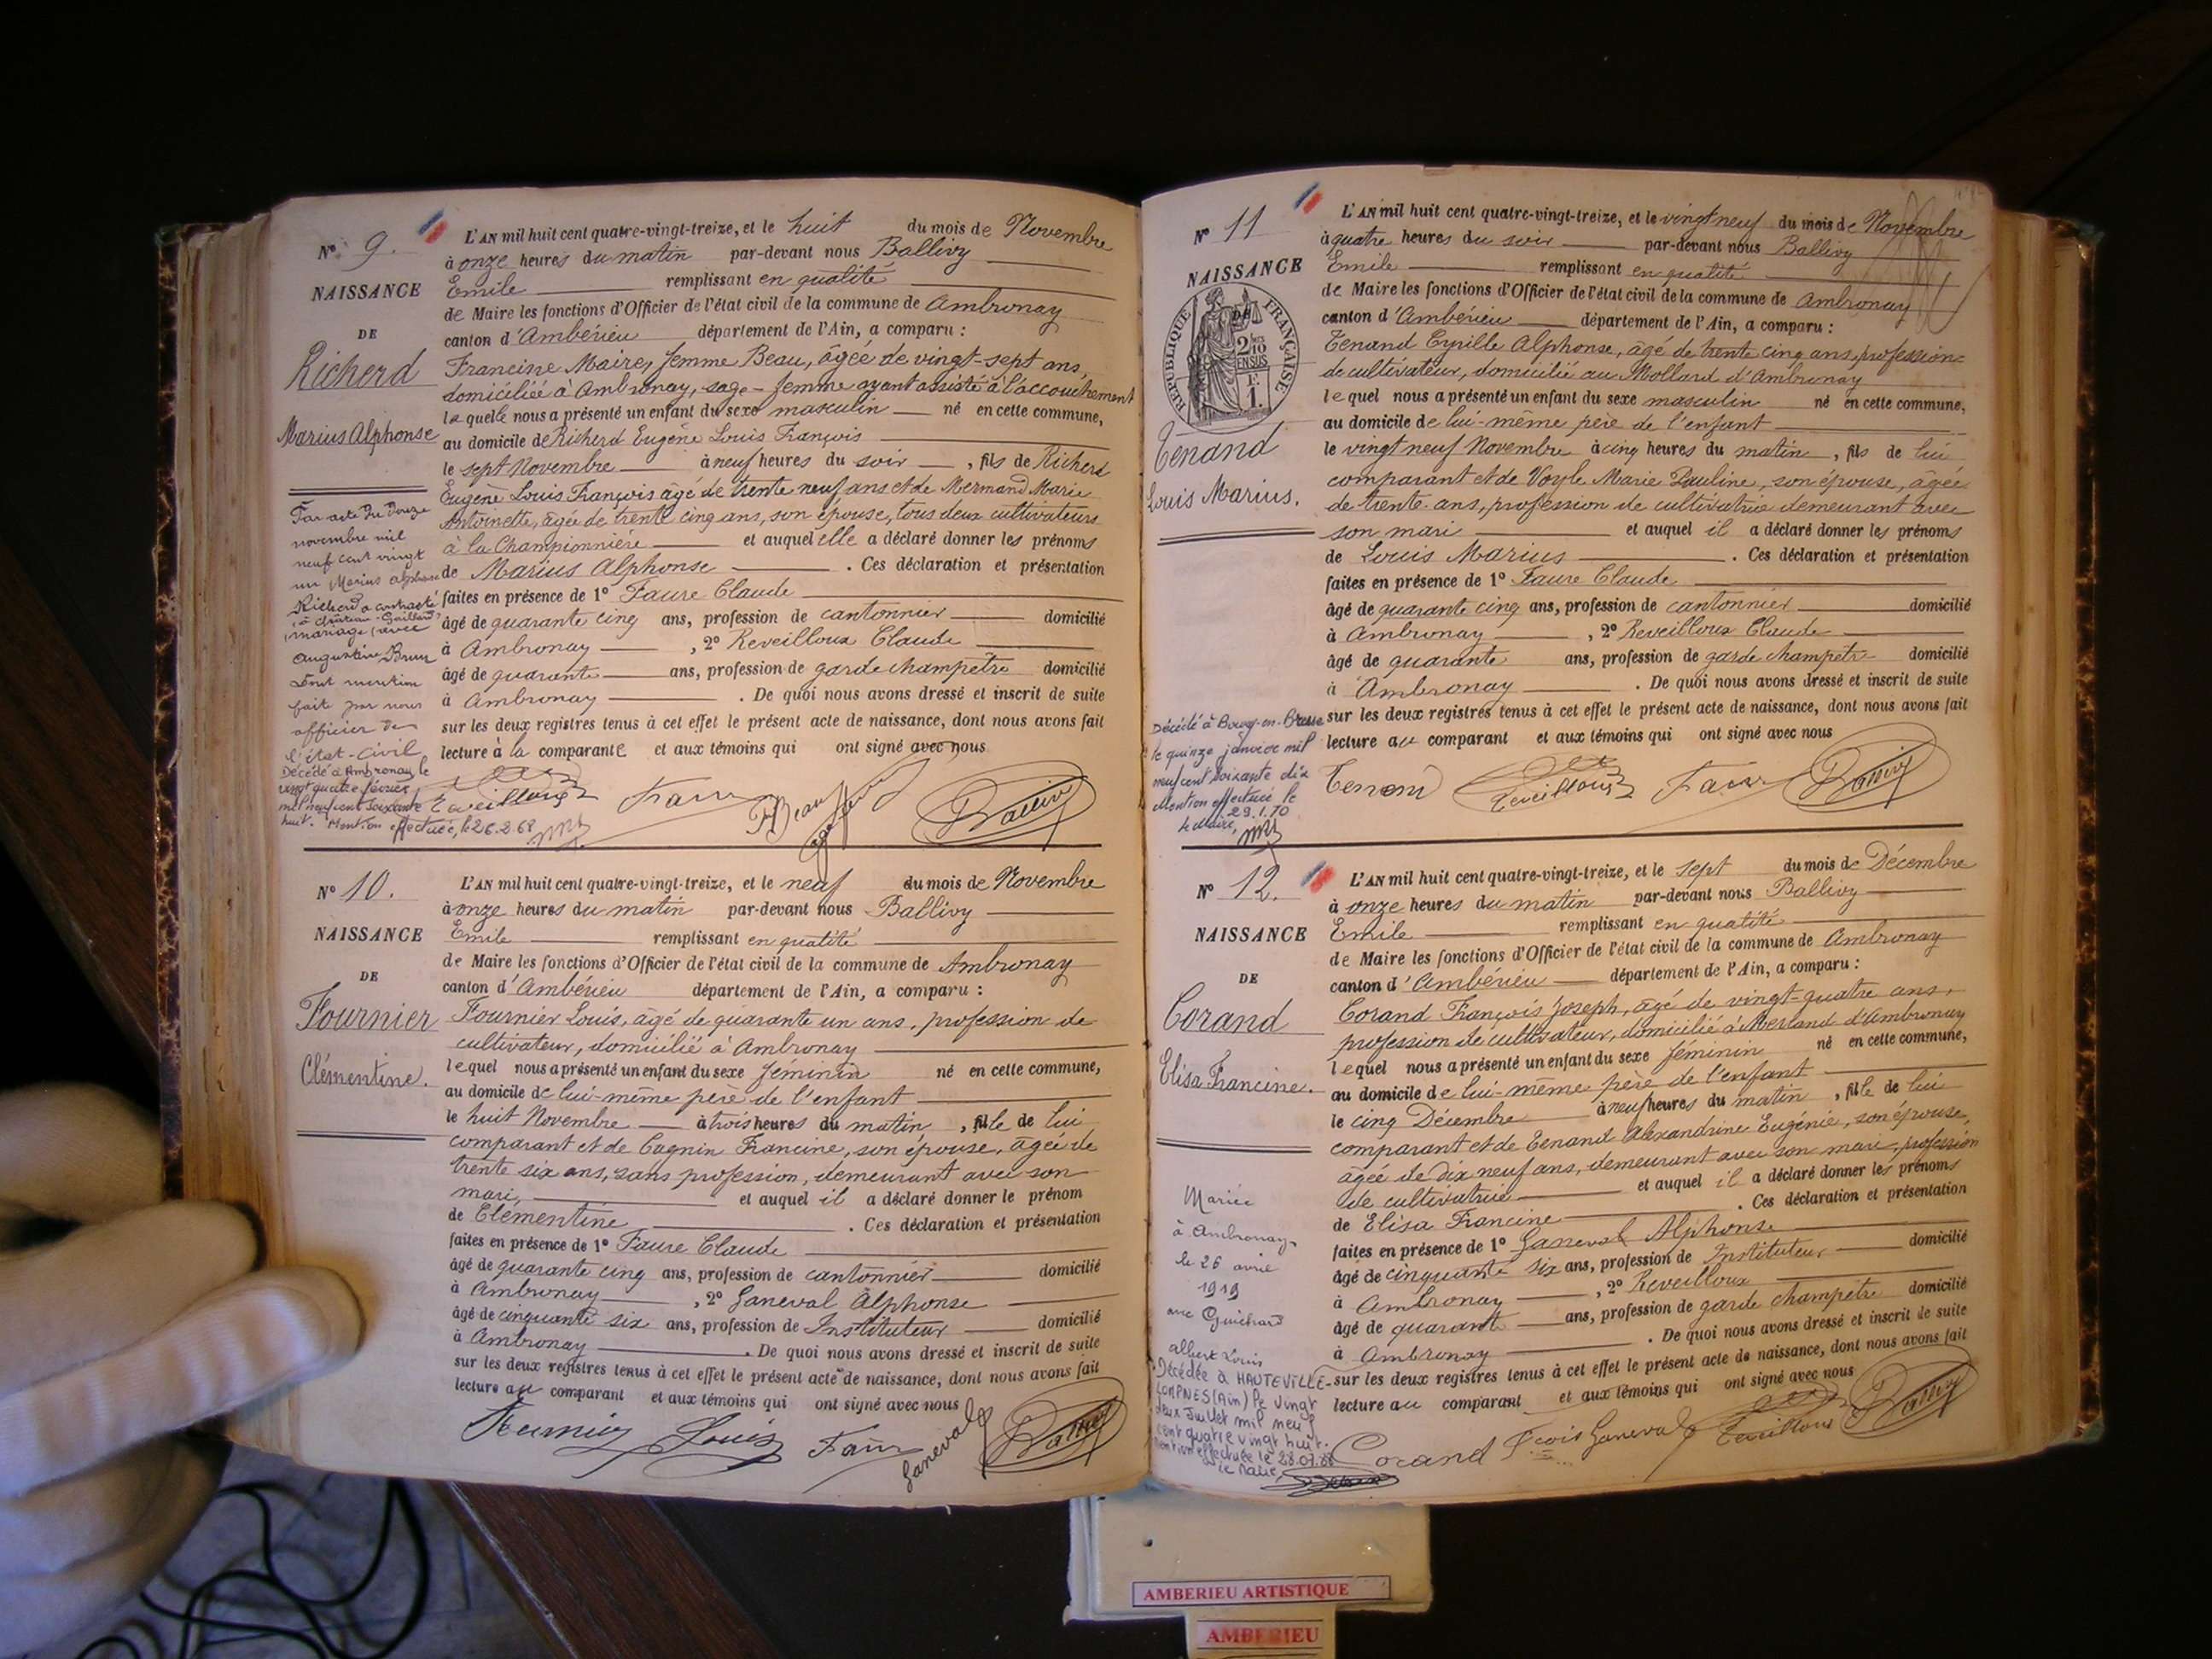 N° 9.
NAISSANCE
DE
Richerd
Marius Alphonse
L'AN mil huit cent quatre-vingt-treize, et le huit du mois de Novembre
à onze heures du matin par-devant nous Ballivy
Emile remplissant en qualité
de Maire les fonctions d'Officier de l'état civil de la commune de Ambronay
canton d'Ambérieu département de l'Ain, a comparu :
Francine Maire, femme Beau, âgée de vingt-sept ans,
domiciliée à Ambronay, sage-femme ayant assisté à l'accouchement
laquelle nous a présenté un enfant du sexe masculin né en cette commune,
au domicile de Richerd Eugène Louis François
le sept Novembre à neuf heures du soir, fils de Richerd
Eugène Louis François âgé de trente neuf ans et de Mermand Marie
Antoinette, âgée de trente cinq ans, son épouse, tous deux cultivateurs
à la Championnière et auquel elle a déclaré donner les prénoms
de Marius Alphonse . Ces déclaration et présentation
faites en présence de 1° Faure Claude
âgé de quarante cinq ans, profession de cantonnier domicilié
à Ambronay , 2° Reveilloux Claude
âgé de quarante ans, profession de garde champêtre domicilié
à Ambronay . De quoi nous avons dressé et inscrit de suite
sur les deux registres tenus à cet effet le présent acte de naissance, dont nous avons fait
lecture à la comparante et aux témoins qui ont signé avec nous
Par acte du douze
novembre mil
neuf cent vingt
un Marius Alphonse
Richerd a contracté
à Château-Gaillard
mariage avec
Augustine Brun
Dont mention
faite par nous
officier de
l'état-civil
Décédé à Ambronay le
vingt quatre février
mil neuf cent soixante
huit. Mention effectuée, le 26.2.68
Reveilloux Faure Beau Ballivy
N° 10.
NAISSANCE
DE
Fournier
Clémentine.
L'AN mil huit cent quatre-vingt-treize, et le neuf du mois de Novembre
à onze heures du matin par-devant nous Ballivy
Emile remplissant en qualité
de Maire les fonctions d'Officier de l'état civil de la commune de Ambronay
canton d'Ambérieu département de l'Ain, a comparu :
Fournier Louis, âgé de quarante un ans, profession de
cultivateur, domicilié à Ambronay
lequel nous a présenté un enfant du sexe féminin né en cette commune,
au domicile de lui-même père de l'enfant
le huit Novembre à trois heures du matin, fille de lui
comparant et de Cagnin Francine, son épouse, âgée de
trente six ans, sans profession, demeurant avec son
mari, et auquel il a déclaré donner le prénom
de Clémentine . Ces déclaration et présentation
faites en présence de 1° Faure Claude
âgé de quarante cinq ans, profession de cantonnier domicilié
à Ambronay , 2° Janeval Alphonse
âgé de cinquante six ans, profession de Instituteur domicilié
à Ambronay . De quoi nous avons dressé et inscrit de suite
sur les deux registres tenus à cet effet le présent acte de naissance, dont nous avons fait
lecture au comparant et aux témoins qui ont signé avec nous
Fournier Louis Faure Janeval Ballivy
N° 11
NAISSANCE
DE
RÉPUBLIQUE FRANÇAISE
2/10
EN SUS
1 F.
Tenand
Louis Marius.
L'AN mil huit cent quatre-vingt-treize, et le vingt neuf du mois de Novembre
à quatre heures du soir par-devant nous Ballivy
Emile remplissant en qualité
de Maire les fonctions d'Officier de l'état civil de la commune de Ambronay
canton d'Ambérieu département de l'Ain, a comparu :
Tenand Cyrille Alphonse, âgé de trente cinq ans, profession
de cultivateur, domicilié au Mollard d'Ambronay
lequel nous a présenté un enfant du sexe masculin né en cette commune,
au domicile de lui-même père de l'enfant
le vingt neuf Novembre à cinq heures du matin, fils de lui
comparant et de Voyle Marie Pauline, son épouse, âgée
de trente ans, profession de cultivatrice demeurant avec
son mari et auquel il a déclaré donner les prénoms
de Louis Marius . Ces déclaration et présentation
faites en présence de 1° Faure Claude
âgé de quarante cinq ans, profession de cantonnier domicilié
à Ambronay , 2° Reveilloux Claude
âgé de quarante ans, profession de garde champêtre domicilié
à Ambronay . De quoi nous avons dressé et inscrit de suite
sur les deux registres tenus à cet effet le présent acte de naissance, dont nous avons fait
lecture au comparant et aux témoins qui ont signé avec nous
Décédé à Bourg-en-Bresse
le quinze janvier mil
neuf cent soixante dix
Mention effectuée le
29.1.70
Le Maire,
Tenand Reveilloux Faure Ballivy
N° 12.
NAISSANCE
DE
Corand
Elisa Francine.
L'AN mil huit cent quatre-vingt-treize, et le sept du mois de Décembre
à onze heures du matin par-devant nous Ballivy
Emile remplissant en qualité
de Maire les fonctions d'Officier de l'état civil de la commune de Ambronay
canton d'Ambérieu département de l'Ain, a comparu :
Corand François Joseph, âgé de vingt-quatre ans,
profession de cultivateur, domicilié à Merland d'Ambronay
lequel nous a présenté un enfant du sexe féminin né en cette commune,
au domicile de lui-même père de l'enfant
le cinq Décembre à neuf heures du matin, fille de lui
comparant et de Tenand Alexandrine Eugénie, son épouse,
âgée de dix neuf ans, demeurant avec son mari, profession
de cultivatrice et auquel il a déclaré donner les prénoms
de Elisa Francine . Ces déclaration et présentation
faites en présence de 1° Janeval Alphonse
âgé de cinquante six ans, profession de Instituteur domicilié
à Ambronay , 2° Reveilloux
âgé de quarante ans, profession de garde champêtre domicilié
à Ambronay . De quoi nous avons dressé et inscrit de suite
sur les deux registres tenus à cet effet le présent acte de naissance, dont nous avons fait
lecture au comparant et aux témoins qui ont signé avec nous
Mariée
à Ambronay
le 26 avril
1919
avec Guichard
Albert Louis
Décédée à HAUTEVILLE-
LOMPNES (Ain) le vingt
deux Juillet mil neuf
cent quatre vingt huit.
Mention effectuée le 28.07.88
Le Maire,
Corand Fçois Janeval Reveilloux Ballivy
AMBERIEU ARTISTIQUE
AMBERIEU